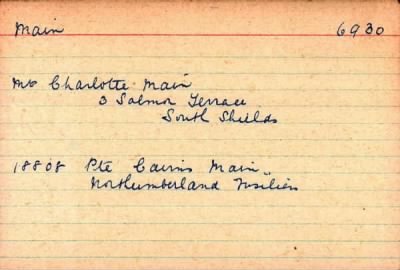 Main 6930
Mrs Charlotte Main
3 Salmon Terrace
South Shields
18808 Pte Cairns Main
Northumberland Fusiliers